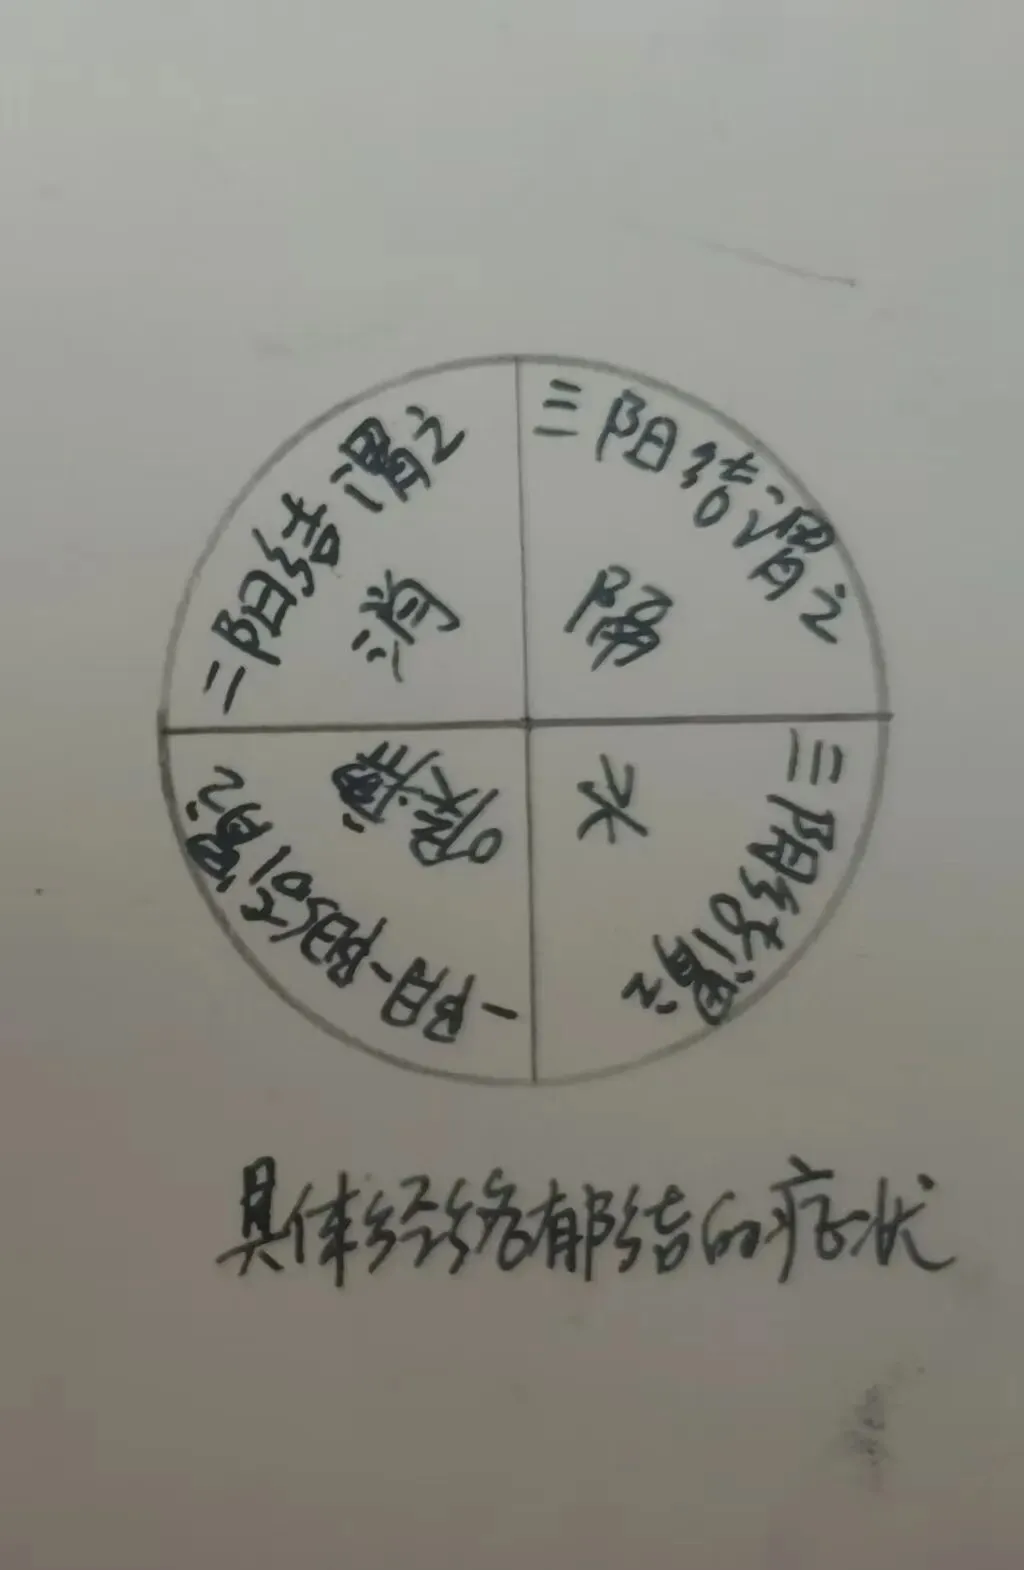 二阳结谓之
消
三阳结谓之
隔
三阴结谓之
水
一阴一阳结谓之
喉痹
具体经络郁结的症状